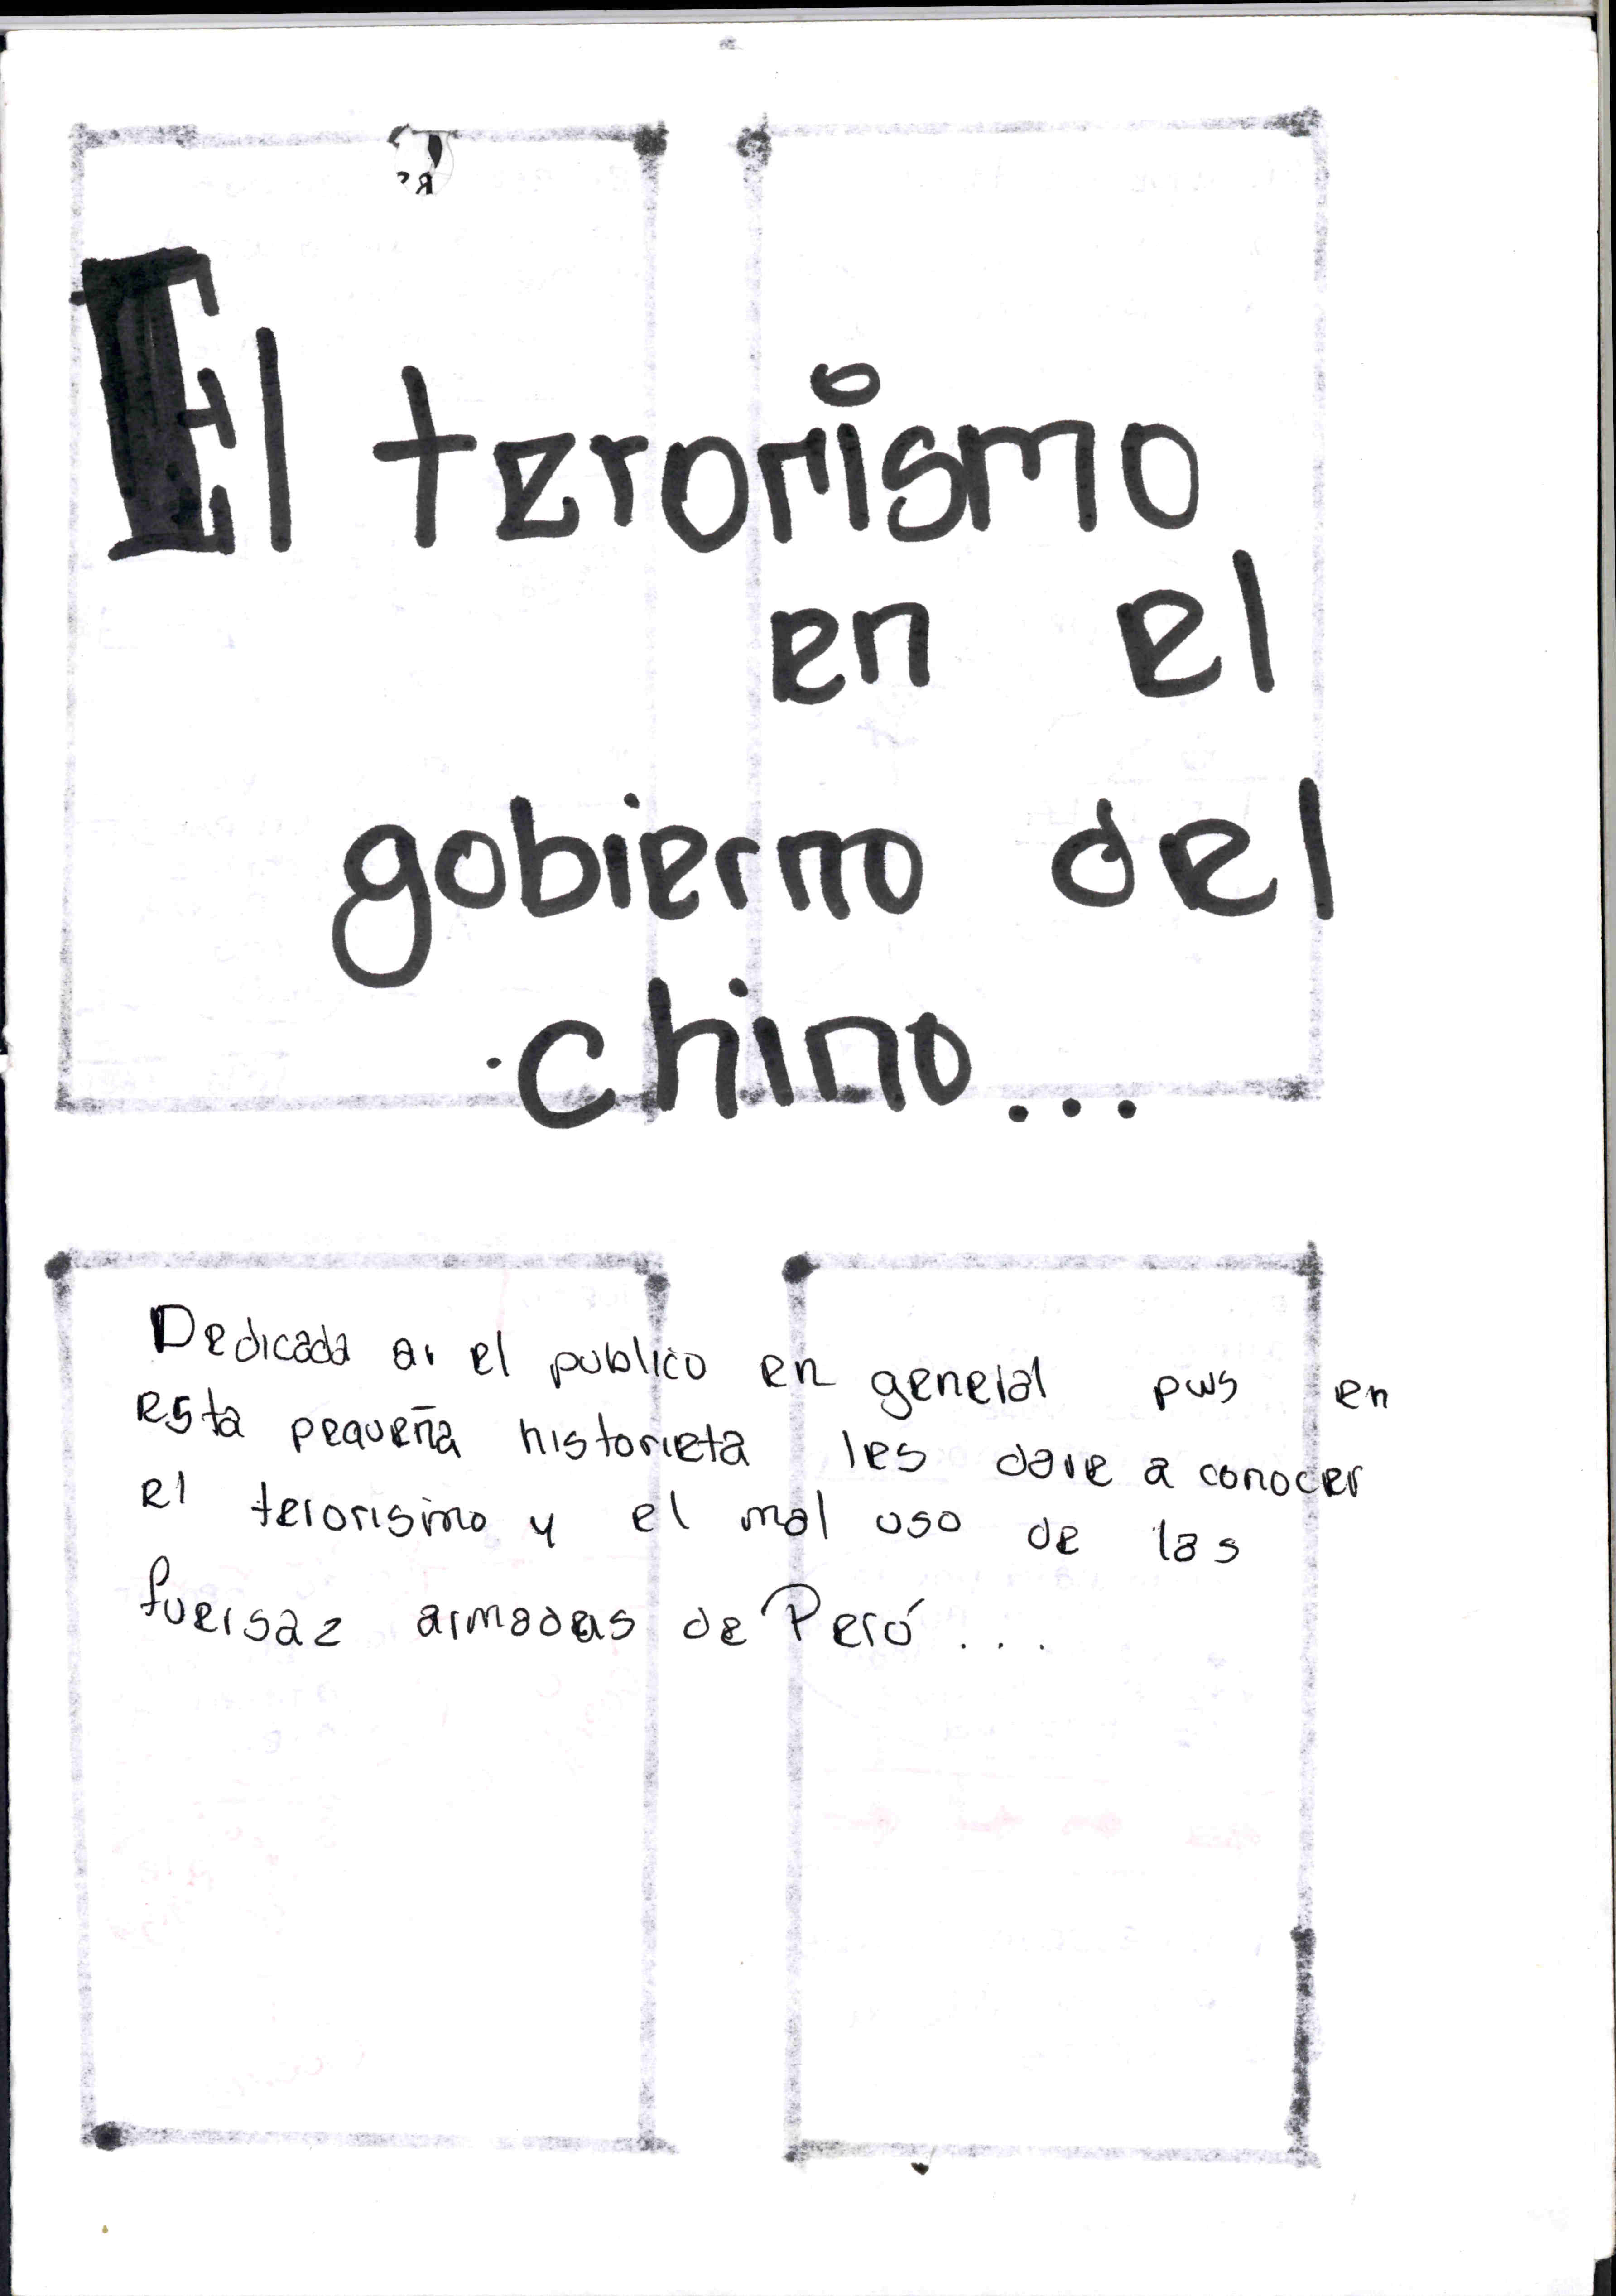 El terorismo
en el
gobierno del
chino...
Dedicada a el publico en general pws en
esta pequeña historieta les dare a conocer
el terorismo y el mal uso de las
fuersaz armadas de Perú...